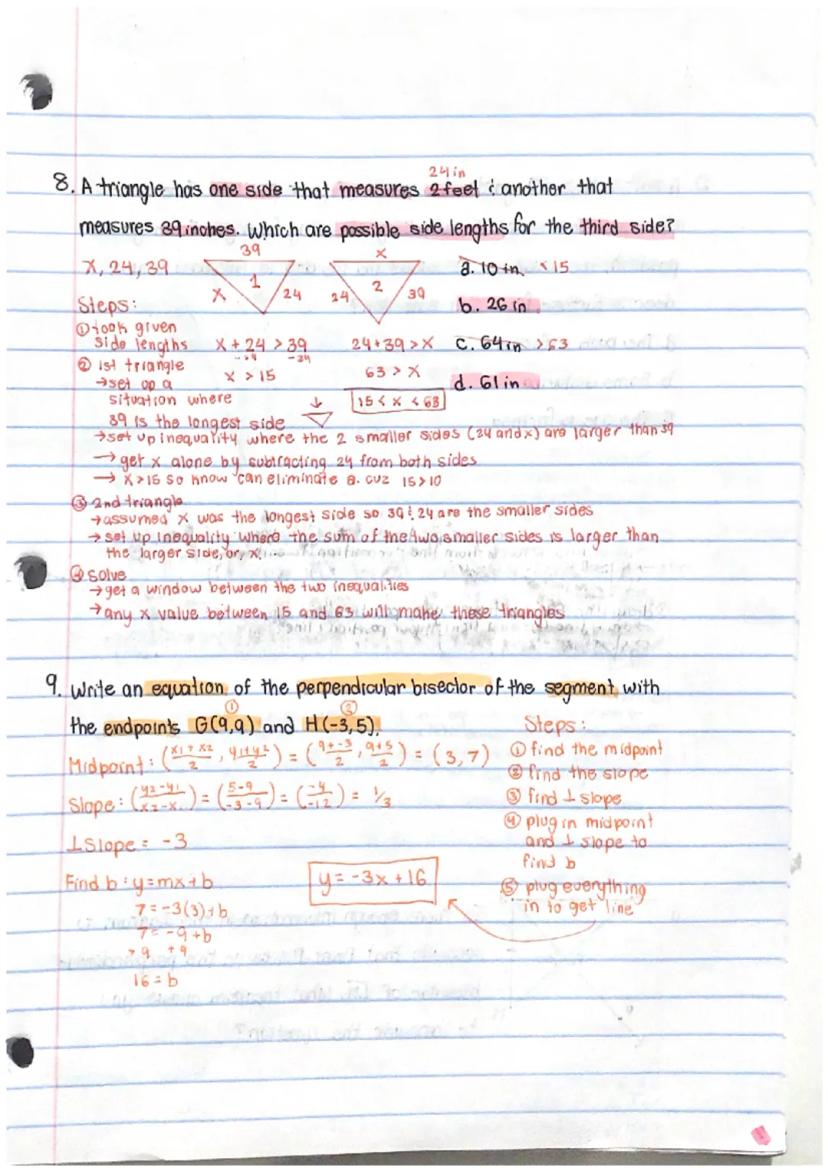 24 in
8. A triangle has one side that measures 2 feet & another that
measures 39 inches. Which are possible side lengths for the third side?
x, 24, 39
39
1
x
24
x
2
24
39
a. 10 in < 15
b. 26 in
c. 64 in > 63
d. 61 in
Steps:
① took given
side lengths
x + 24 > 39
-24 -24
x > 15
24 + 39 > x
63 > x
15 < x < 63
② 1st triangle
→ set up a
situation where
39 is the longest side
→ set up inequality where the 2 smaller sides (24 and x) are larger than 39
→ get x alone by subtracting 24 from both sides
→ x > 15 so know can eliminate a. cuz 15 > 10
③ 2nd triangle
→ assumed x was the longest side so 39 & 24 are the smaller sides
→ set up inequality where the sum of the two smaller sides is larger than
the larger side, or, x.
④ solve
→ get a window between the two inequalities
→ any x value between 15 and 63 will make these triangles
9. Write an equation of the perpendicular bisector of the segment with
① ②
the endpoints G(9,9) and H(-3,5).
Midpoint: (x1+x2/2, y1+y2/2) = (9+-3/2, 9+5/2) = (3, 7)
Slope: (y2-y1/x2-x1) = (5-9/-3-9) = (-4/-12) = 1/3
⊥ Slope = -3
Find b: y = mx + b
7 = -3(3) + b
7 = -9 + b
+9 +9
16 = b
y = -3x + 16
Steps:
① find the midpoint
② find the slope
③ find ⊥ slope
④ plug in midpoint
and ⊥ slope to
find b
⑤ plug everything
in to get line